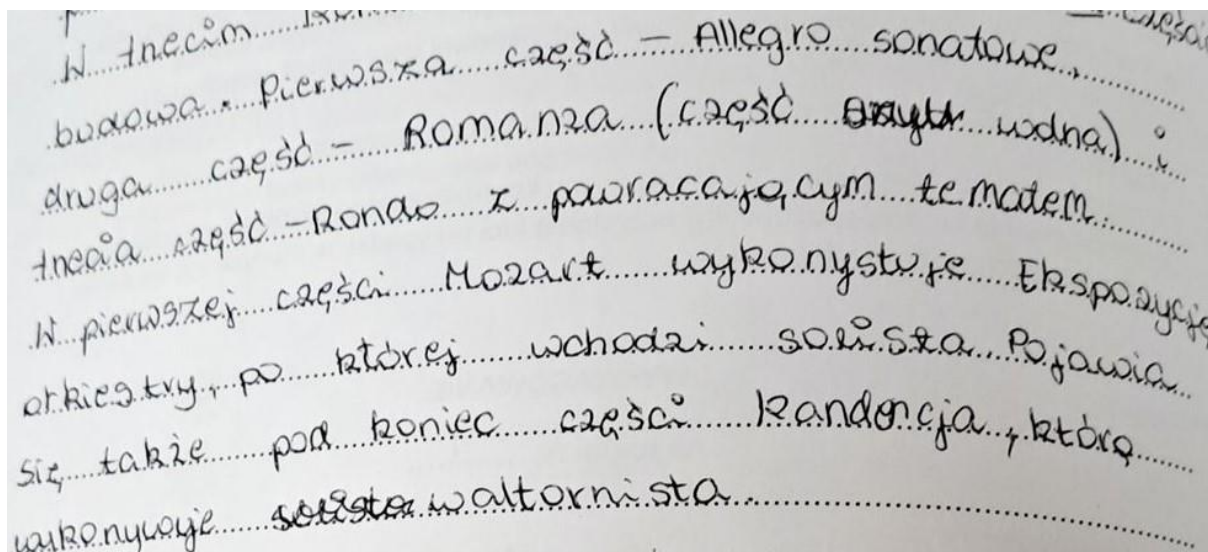 W trzecim
budowa. Pierwsza część - Allegro sonatowe,
druga część - Romanza (część wolna) i
trzecia część - Rondo z pawracającym tematem.
W pierwszej części Mozart wykorzystuje Ekspozycję
orkiestry, po której wchodzi solista Pojawia
się także pod koniec części kandencja, którą
wykonywuje solista waltornista